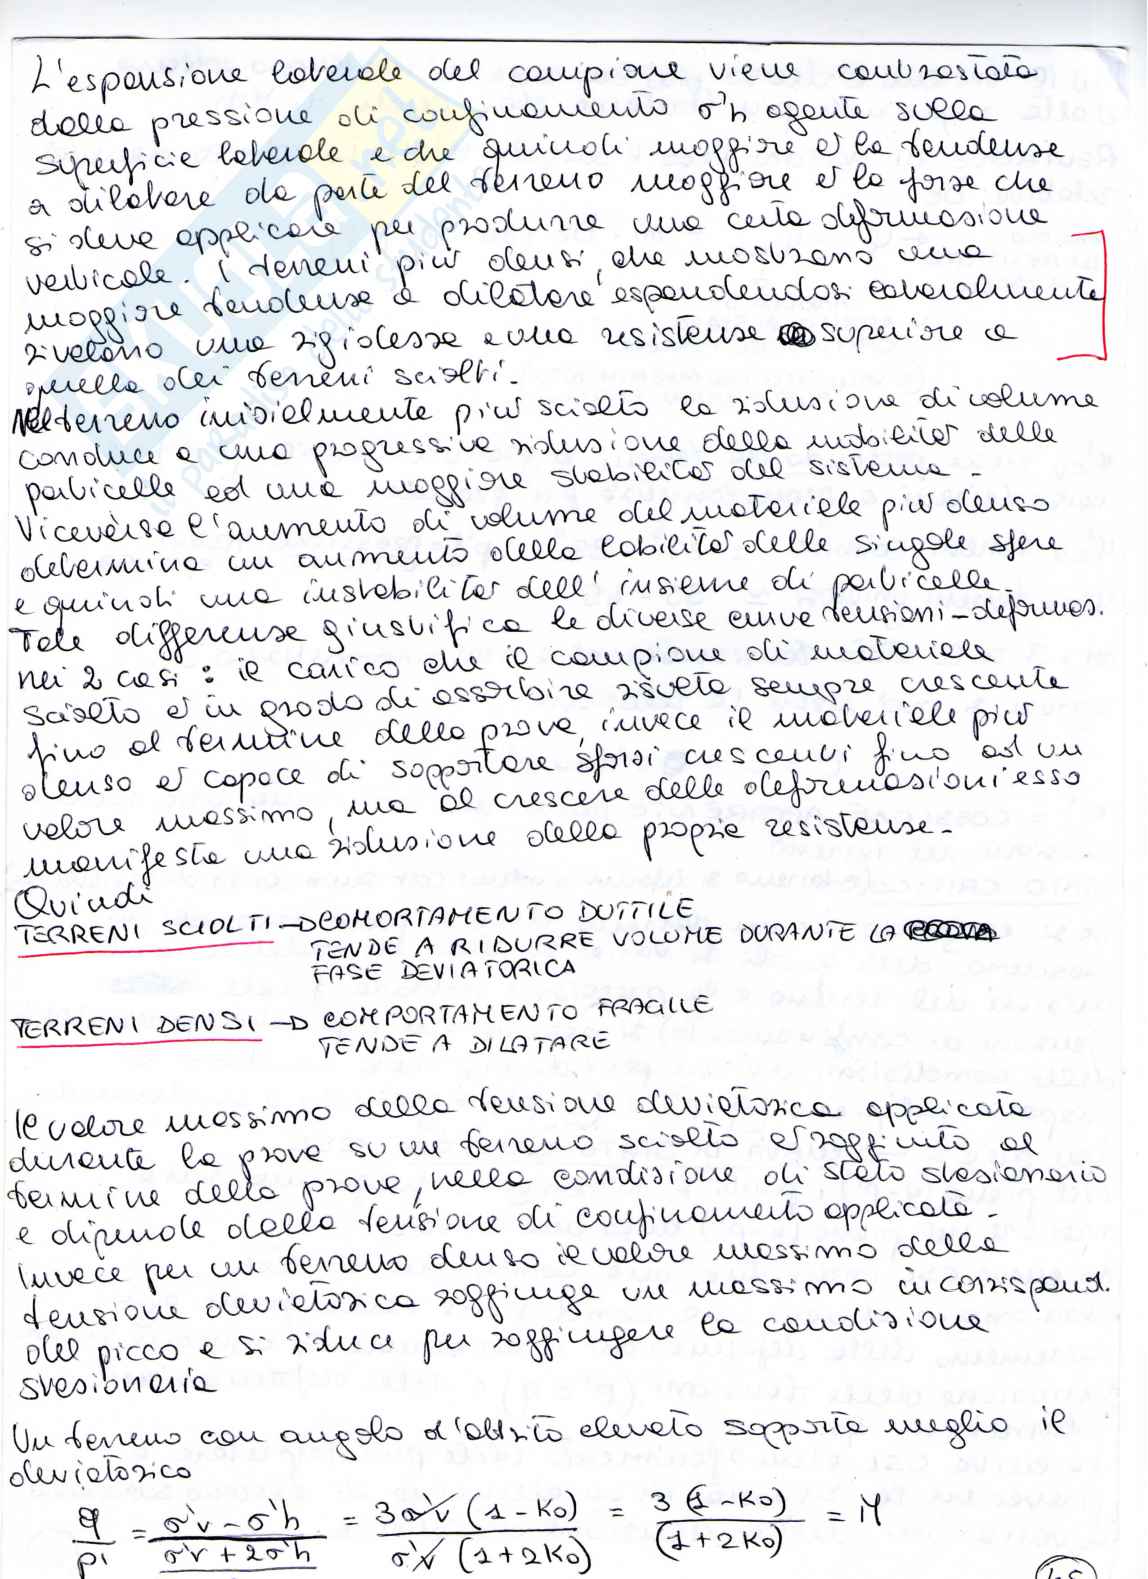 L'espansione laterale del campione viene contrastata
dalla pressione di confinamento σ'h agente sulla
superficie laterale e che quindi maggiore è la tendenza
a dilatare da parte del terreno maggiore è la forza che
si deve applicare per produrre una certa deformazione
verticale. I terreni più densi, che mostrano una
maggiore tendenza a dilatare espandendosi lateralmente
rivelano una rigidezza e una resistenza superiore a
quella dei terreni sciolti.
Nel terreno inizialmente più sciolto la riduzione di volume
conduce a una progressiva riduzione della mobilità delle
particelle ed una maggiore stabilità del sistema.
Viceversa l'aumento di volume del materiale più denso
determina un aumento della labilità delle singole sfere
e quindi una instabilità dell'insieme di particelle.
Tale differenza giustifica le diverse curve tensioni-deformaz.
nei 2 casi: il carico che il campione di materiale
sciolto è in grado di assorbire risulta sempre crescente
fino al termine della prova, invece il materiale più
denso è capace di sopportare sforzi crescenti fino ad un
valore massimo, ma al crescere delle deformazioni esso
manifesta una riduzione della propria resistenza.
Quindi
TERRENI SCIOLTI → COMORTAMENTO DUTTILE
TENDE A RIDURRE VOLUME DURANTE LA
FASE DEVIATORICA
TERRENI DENSI → COMPORTAMENTO FRAGILE
TENDE A DILATARE
Il valore massimo della tensione deviatorica applicata
durante la prova su un terreno sciolto è raggiunto al
termine della prova, nella condizione di stato stazionario
e dipende dalla tensione di confinamento applicata.
Invece per un terreno denso il valore massimo della
tensione deviatorica raggiunge un massimo in corrispond.
del picco e si riduce per raggiungere la condizione
stazionaria
Un terreno con angolo d'attrito elevato sopporta meglio il
deviatorico
q/p' = (σ'v - σ'h)/(σ'v + 2σ'h) = 3σ'v (1 - K0)/σ'v (1 + 2K0) = 3 (1 - K0)/(1 + 2K0) = M